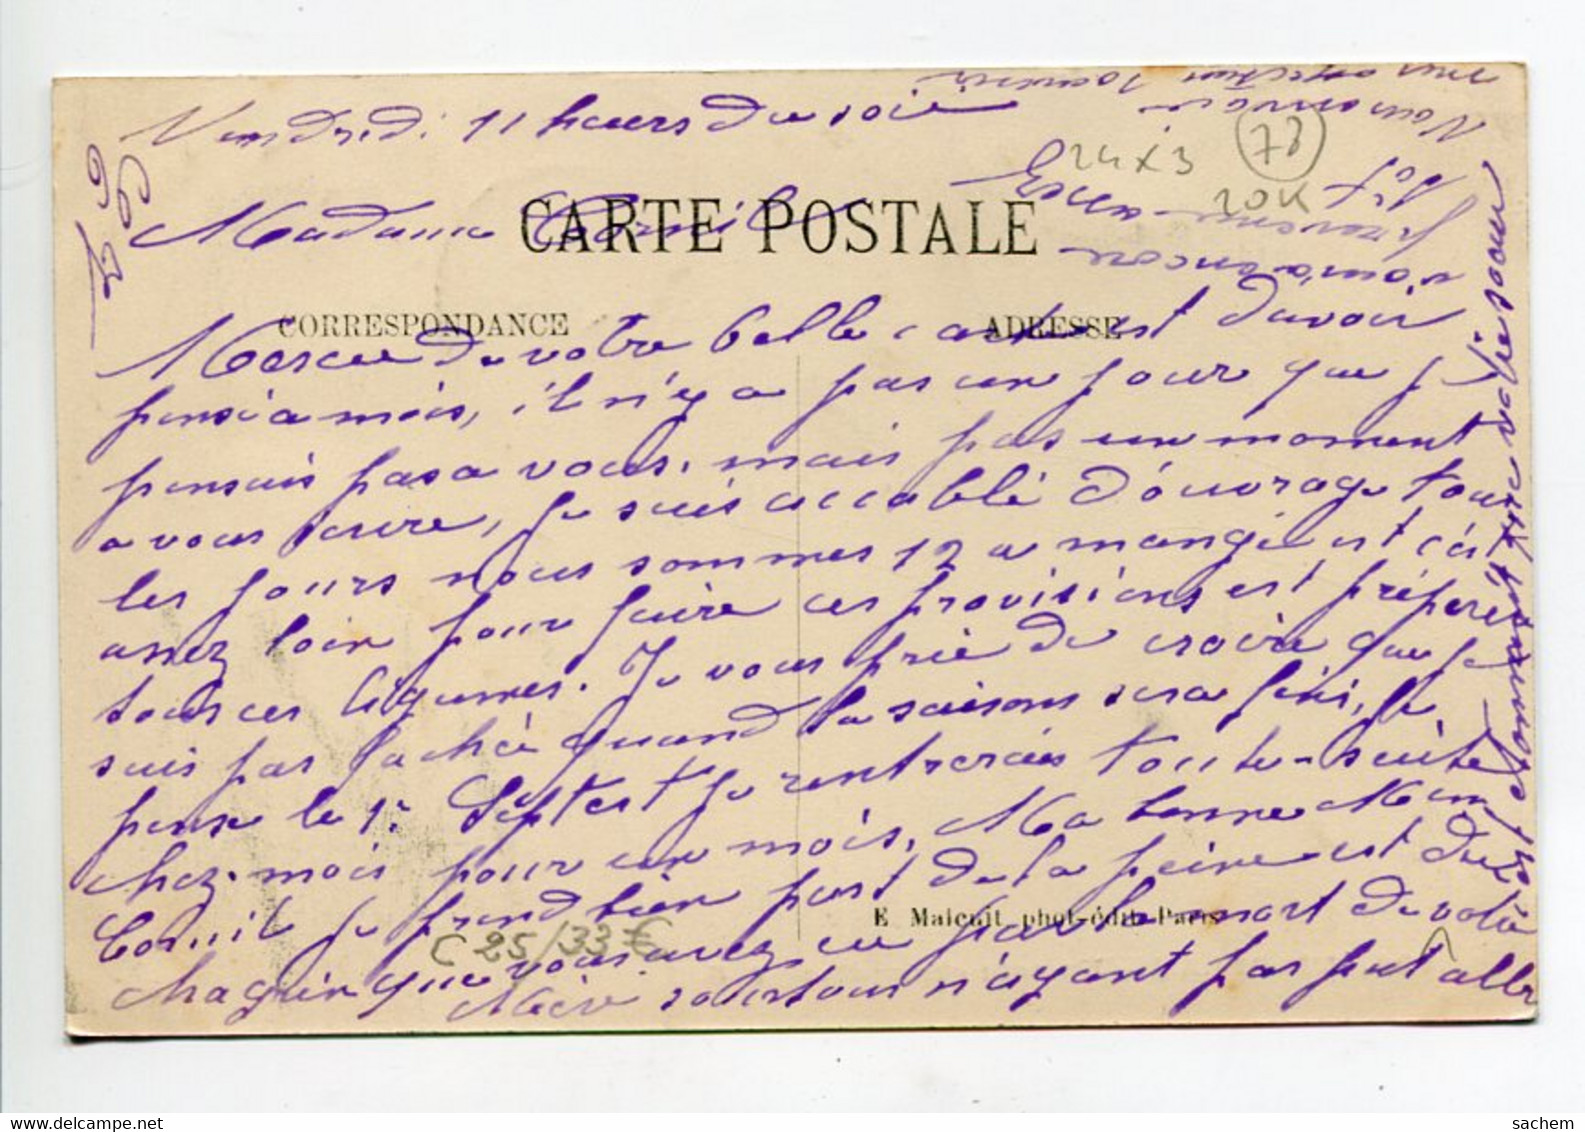 Vendredi 11 heurs du soir
Madame Cornil
CARTE POSTALE
CORRESPONDANCE
ADRESSE
Merci de votre belle carte est davoir
pensé a mois, il n'y a pas un jour que j
pensais pas a vous, mais pas un moment
a vous écrire, je suis accablé d'ouvrage tous
les jours nous sommes 12 a mangé est c'est
assez loin pour faire ces provisions est préparé
tous ces légumes. Je vous prie de croire que je
suis pas fachée quand la saisons sera fini, je
pense le 1r Septest je rentrerais toute-suite
chez-mois pour un mois, Ma bonne Mem
Cornil je prend bien part de la peine est du
chagrin que vous avez eu par la mort de votre
Mère surtout n'ayant pas put aller
E Malcuit phot-édit Paris
votre soeur
vous a encore
Nous
24 X 3
78
20K
C25/33€
sachem